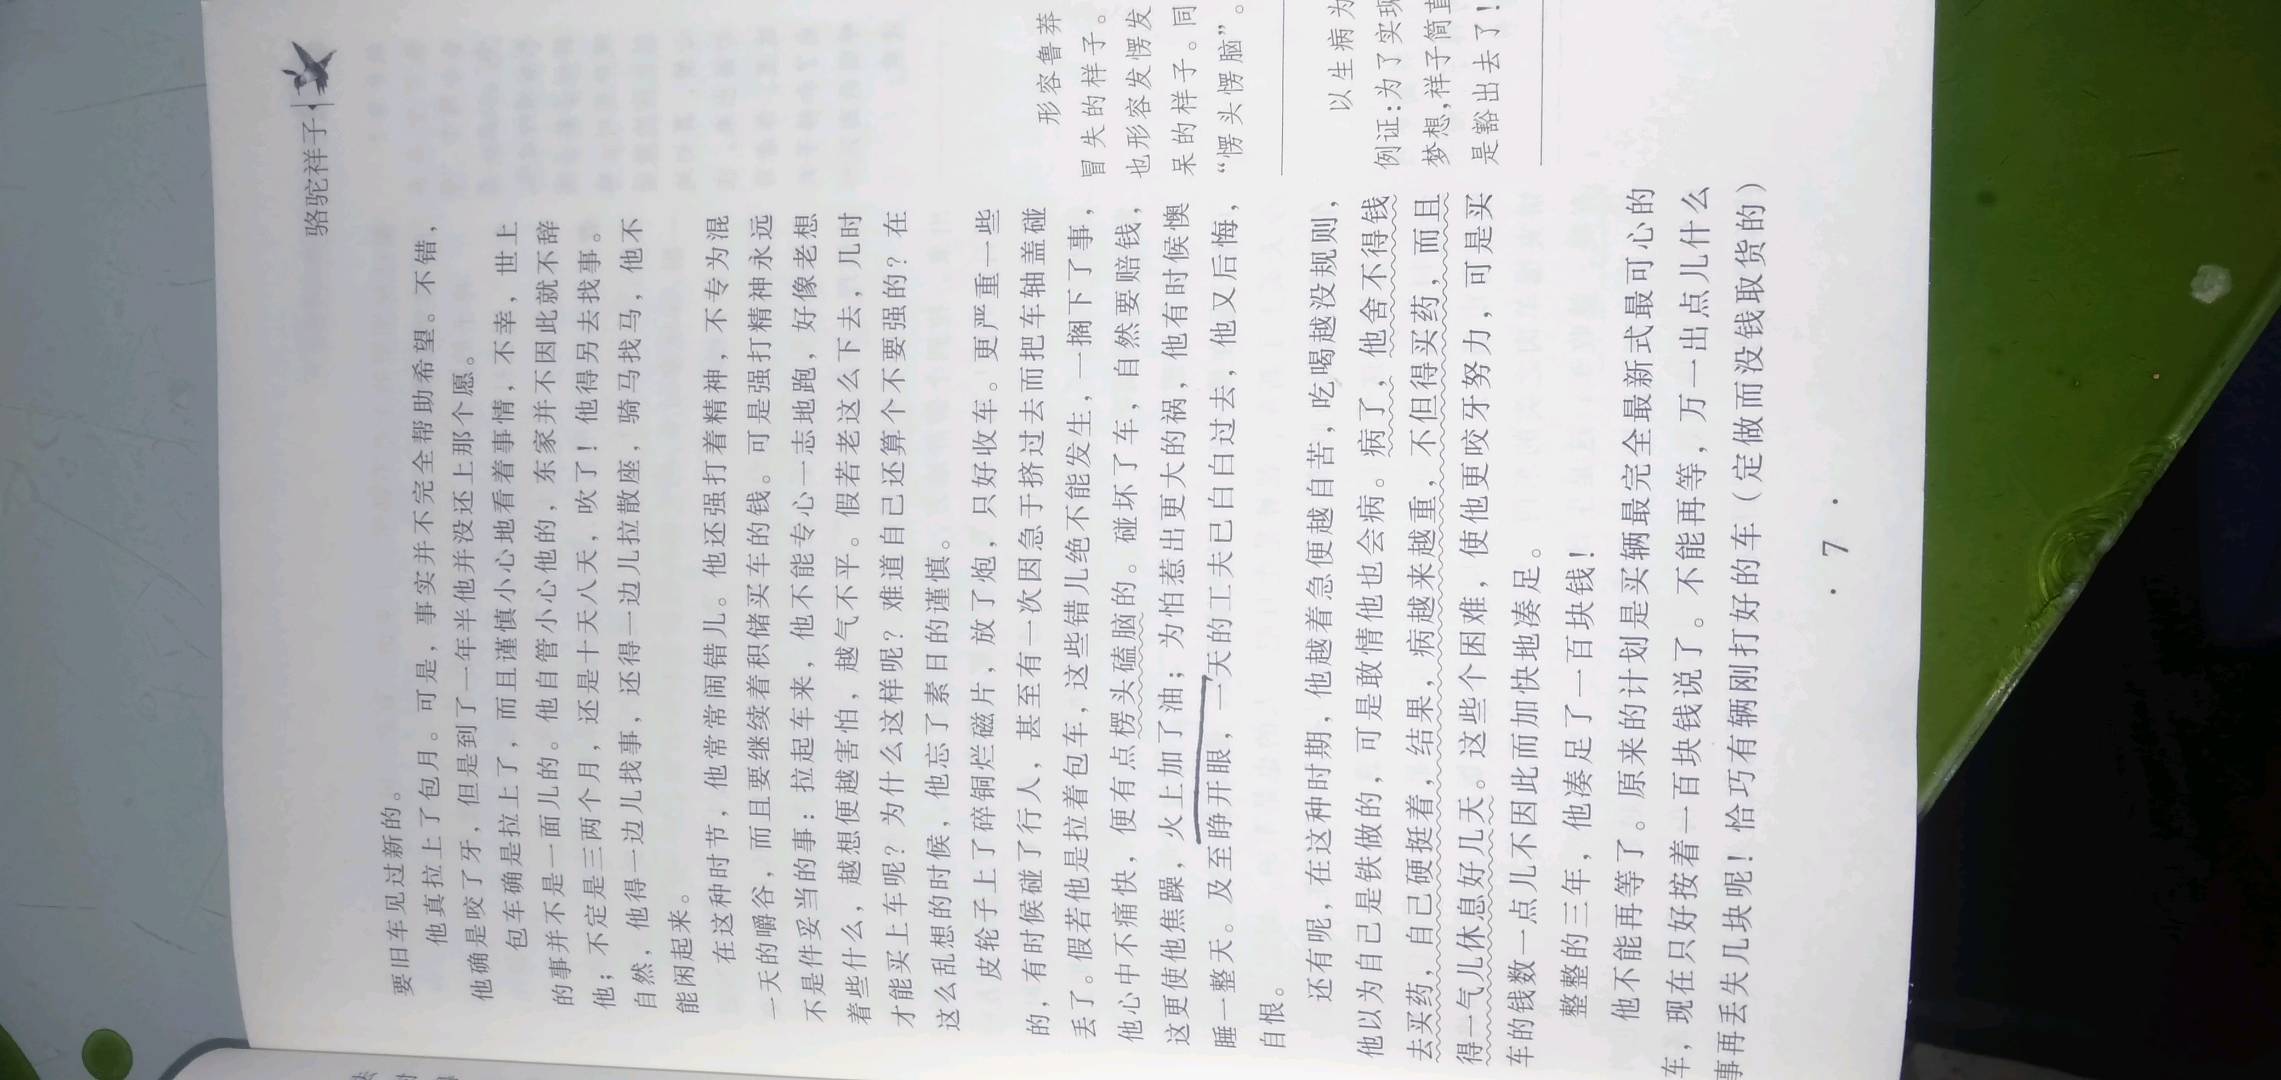 骆驼祥子
要旧车见过新的。
他真拉上了包月。可是，事实并不完全帮助希望。不错，
他确是咬了牙，但是到了一年半他并没还上那个愿。
包车确是拉上了，而且谨慎小心地看着事情，不幸，世上
的事并不是一面儿的。他自管小心他的，东家并不因此就不辞
他；不定是三两个月，还是十天八天，吹了！他得另去找事。
自然，他得一边儿找事，还得一边儿拉散座，骑马找马，他不
能闲起来。
在这种时节，他常常闹错儿。他还强打着精神，不专为混
一天的嚼谷，而且要继续着积储买车的钱。可是强打精神永远
不是件妥当的事：拉起车来，他不能专心一志地跑，好像老想
着些什么，越想便越害怕，越气不平。假若老这么下去，几时
才能买上车呢？为什么这样呢？难道自己还算个不要强的？在
这么乱想的时候，他忘了素日的谨慎。
皮轮子上了碎铜烂磁片，放了炮，只好收车。更严重一些
的，有时候碰了行人，甚至有一次因急于挤过去而把车轴盖碰
丢了。假若他是拉着包车，这些错儿绝不能发生，一搁下了事，
他心中不痛快，便有点楞头磕脑的。碰坏了车，自然要赔钱，
这更使他焦躁，火上加了油；为怕惹出更大的祸，他有时候懊
睡一整天。及至睁开眼，一天的工夫已白白过去，他又后悔，
自恨。
还有呢，在这种时期，他越着急便越自苦，吃喝越没规则，
他以为自己是铁做的，可是敢情他也会病。病了，他舍不得钱
去买药，自己硬挺着，结果，病越来越重，不但得买药，而且
得一气儿休息好几天。这些个困难，使他更咬牙努力，可是买
车的钱数一点儿不因此而加快地凑足。
整整的三年，他凑足了一百块钱！
他不能再等了。原来的计划是买辆最完全最新式最可心的
车，现在只好按着一百块钱说了。不能再等，万一出点儿什么
事再丢失几块呢！恰巧有辆刚打好的车（定做而没钱取货的）
形容鲁莽
冒失的样子。
也形容发愣发
呆的样子。同
“愣头愣脑”。
以生病为
例证：为了实现
梦想，祥子简直
是豁出去了！
· 7 ·